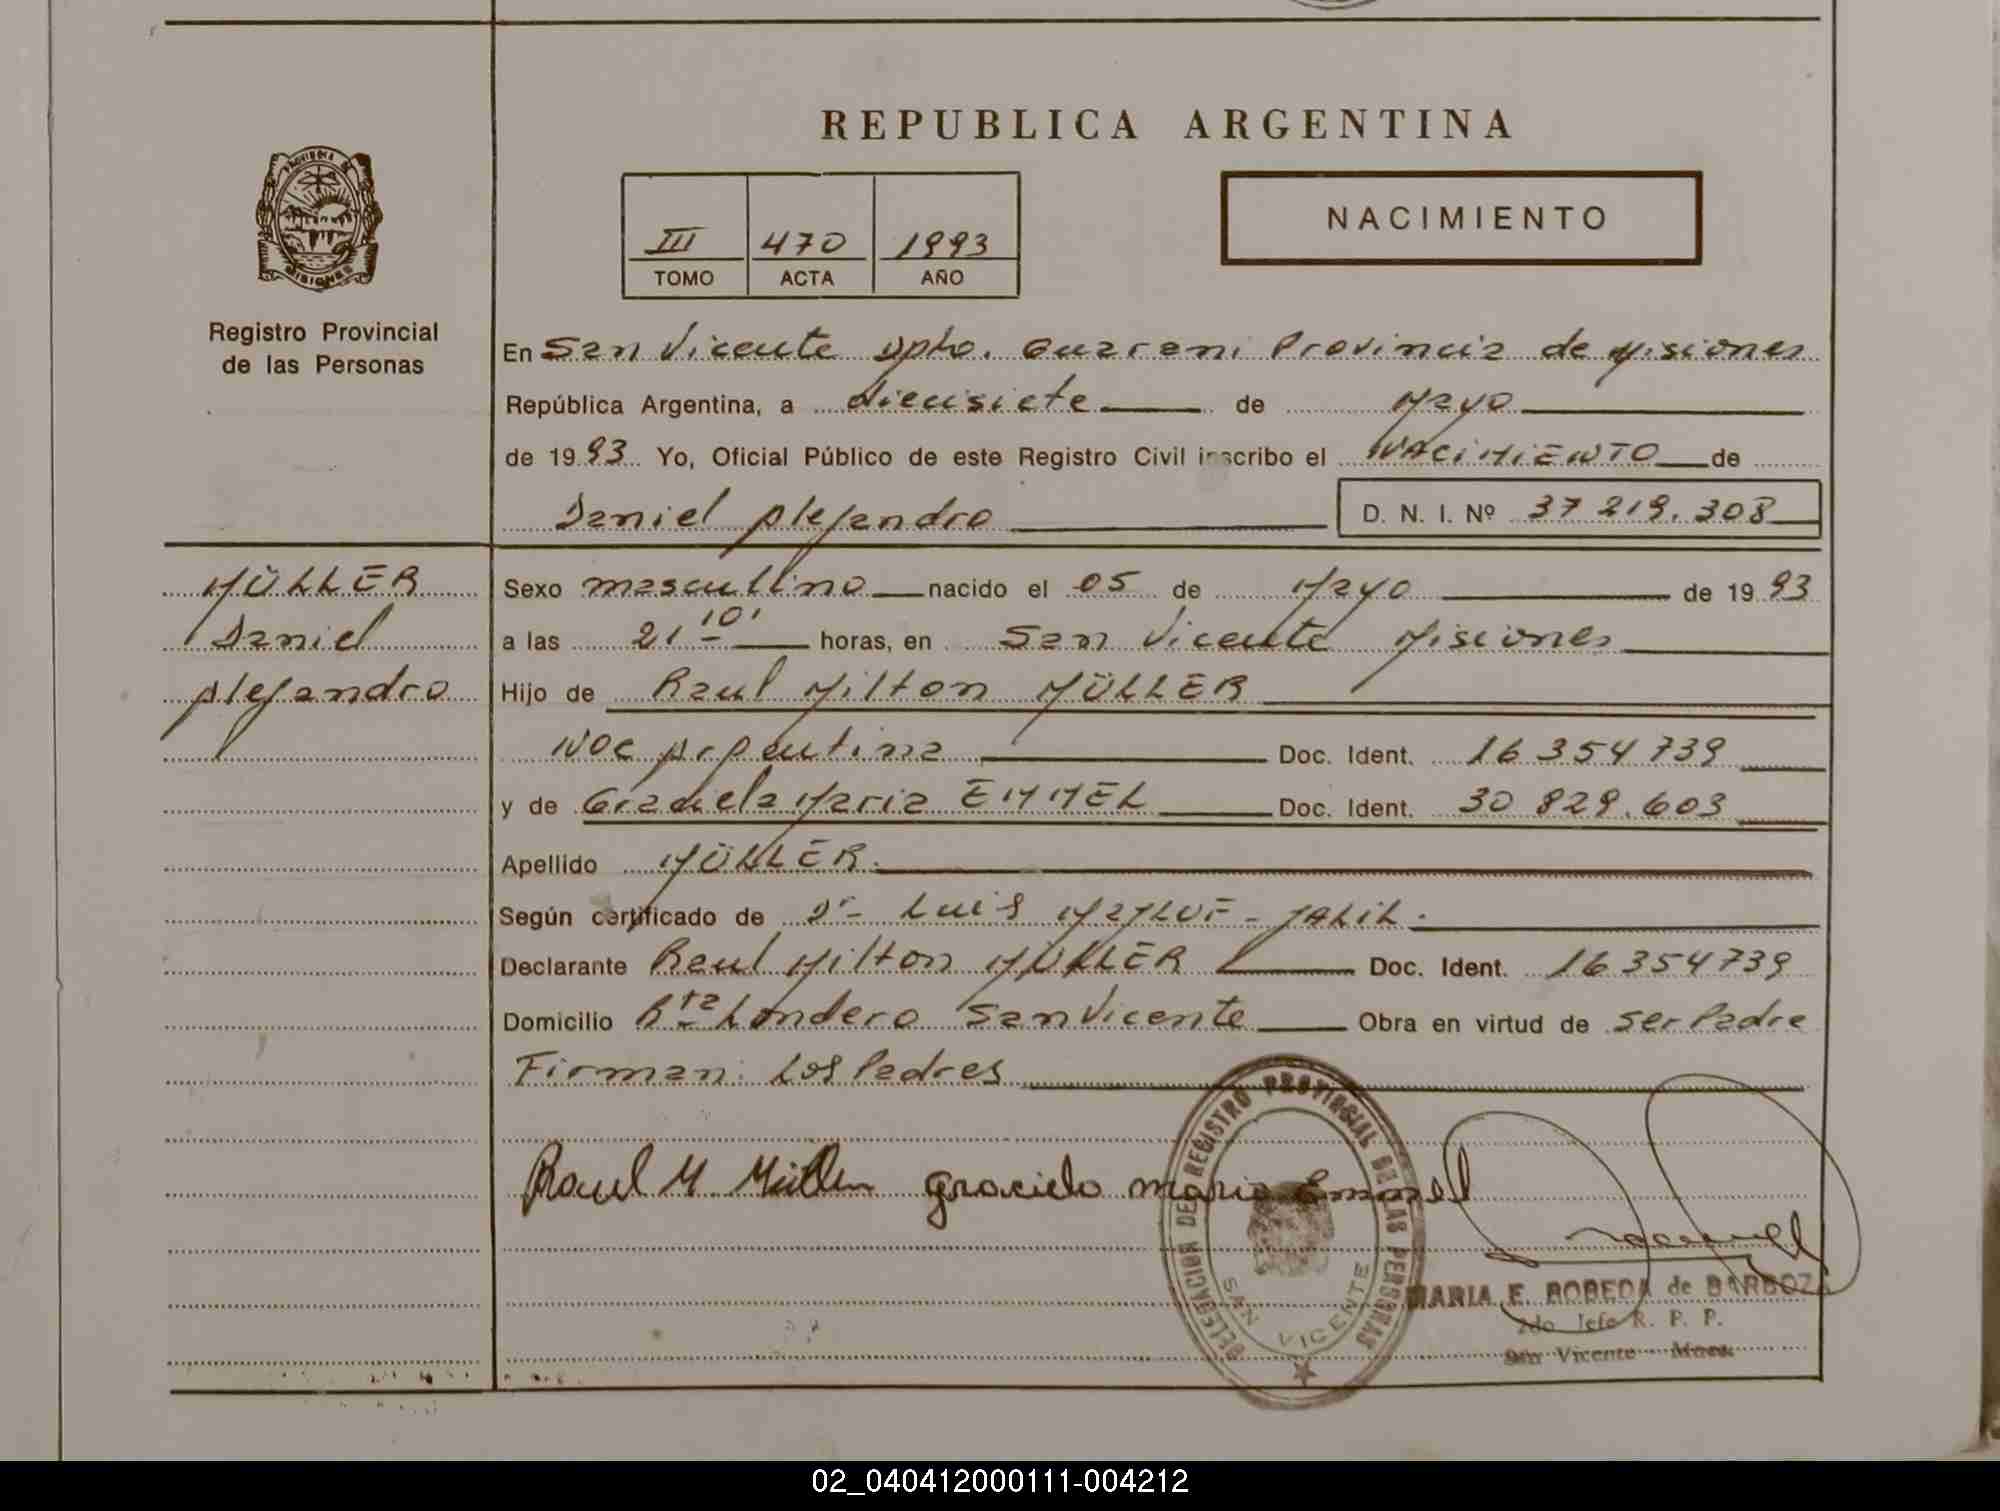 REPUBLICA ARGENTINA
PROVINCIA DE
MISIONES
Registro Provincial
de las Personas
III 470 1993
TOMO ACTA AÑO
NACIMIENTO
En San Vicente Dpto. Guarani Provincia de Misiones
República Argentina, a diecisiete de Mayo
de 1993 Yo, Oficial Público de este Registro Civil inscribo el NACIMIENTO de
Daniel Alejandro D. N. I. Nº 37 219.308
MÜLLER
Daniel
Alejandro
Sexo masculino nacido el 05 de Mayo de 1993
a las 21 10' horas, en San Vicente Misiones
Hijo de Raul Milton MÜLLER
Nac Argentina Doc. Ident. 16 354 739
y de Graciela Maria EMMEL Doc. Ident. 30 829.603
Apellido MÜLLER.
Según certificado de Dr- Luis JALIL.
Declarante Raul Milton MÜLLER Doc. Ident. 16 354 739
Domicilio Rta Londero San Vicente Obra en virtud de ser Padre
Firman: Los Padres
Raul M Müller Graciela Maria Emmel
DELEGACION DE REGISTRO PROVINCIAL DE LAS PERSONAS
SAN VICENTE
MARIA E. BOBEDA de BARBOZA
2do Jefe R. P. P.
San Vicente - Mnes.
02_040412000111-004212